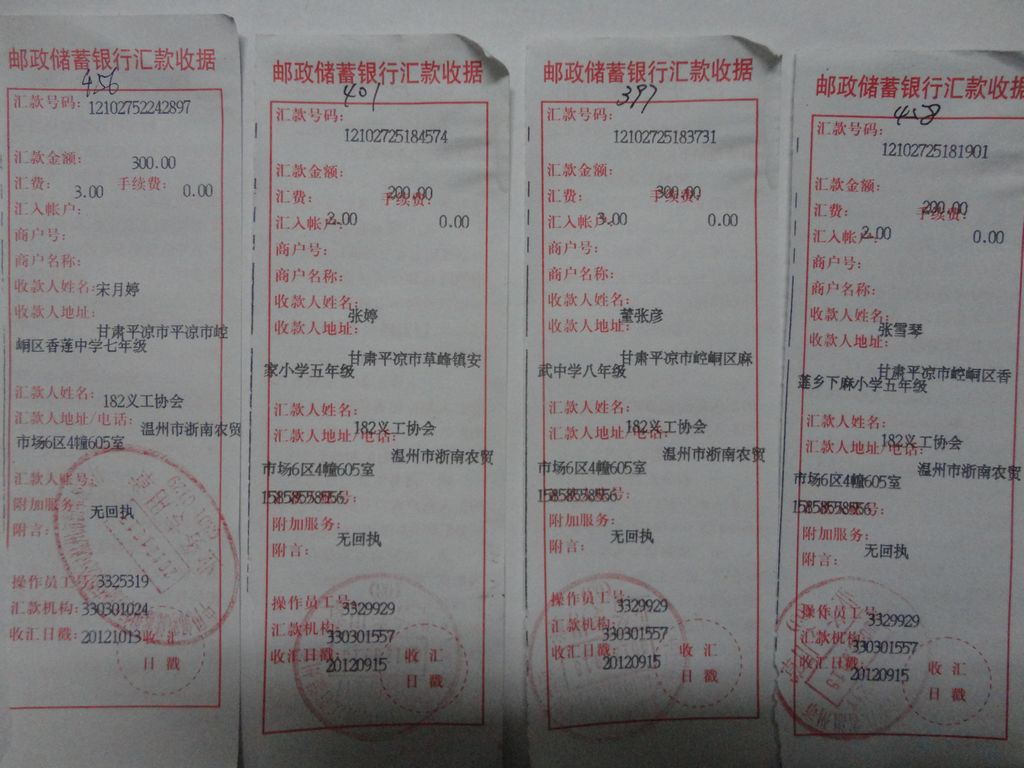 邮政储蓄银行汇款收据
456
汇款号码:
12102752242897
汇款金额: 300.00
汇费: 3.00 手续费: 0.00
汇入帐户:
商户号:
商户名称:
收款人姓名:宋月婷
收款人地址:
甘肃平凉市平凉市崆
峒区香莲中学七年级
汇款人姓名: 182义工协会
汇款人地址/电话: 温州市浙南农贸
市场6区4幢605室
汇款人账号:
附加服务: 无回执
附言:
操作员工号:3325319
汇款机构:330301024
收汇日戳:20121013
收汇
日戳
邮政储蓄银行汇款收据
401
汇款号码:
12102725184574
汇款金额:
200.00
汇费: 手续费:
汇入帐户: 2.00 0.00
商户号:
商户名称:
收款人姓名:
张婷
收款人地址:
甘肃平凉市草峰镇安
家小学五年级
汇款人姓名:
182义工协会
汇款人地址/电话:
温州市浙南农贸
市场6区4幢605室
15858558556
附加服务:
无回执
附言:
操作员工号:
3329929
汇款机构:
330301557
收汇日戳:
20120915
收汇
日戳
邮政储蓄银行汇款收据
397
汇款号码:
12102725183731
汇款金额:
300.00
汇费: 手续费:
汇入帐户: 3.00 0.00
商户号:
商户名称:
收款人姓名:
董张彦
收款人地址:
甘肃平凉市崆峒区麻
武中学八年级
汇款人姓名:
182义工协会
汇款人地址/电话:
温州市浙南农贸
市场6区4幢605室
15858558556
附加服务:
无回执
附言:
操作员工号:
3329929
汇款机构:
330301557
收汇日戳:
20120915
收汇
日戳
邮政储蓄银行汇款收据
458
汇款号码:
12102725181901
汇款金额:
200.00
汇费: 手续费:
汇入帐户: 2.00 0.00
商户号:
商户名称:
收款人姓名:
张雪琴
收款人地址:
甘肃平凉市崆峒区香
莲乡下麻小学五年级
汇款人姓名:
182义工协会
汇款人地址/电话:
温州市浙南农贸
市场6区4幢605室
15858558556
附加服务:
无回执
附言:
操作员工号:
3329929
汇款机构:
330301557
收汇日戳:
20120915
收汇
日戳